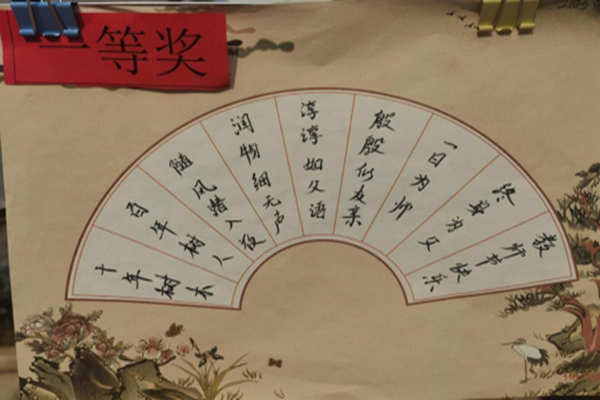 等奖
十年树木
百年树人
随风潜入夜
润物细无声
淳淳如父语
殷殷似友亲
一日为师
终身为父
教师节快乐